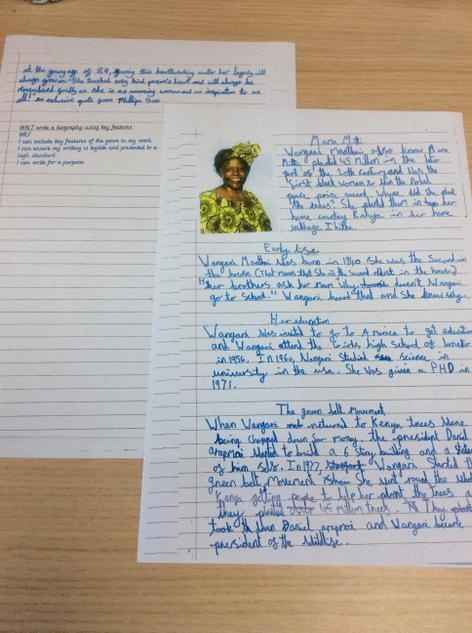 at the young age of
her legacy will
always grow on. She touched every kind person's heart and will always be
remembered fondly as she is an amazing woman and an inspiration to us
all!" an exclusive quote from Phillipa
WALT write a biography using key features
WILF
I can include key features of the genre in my work.
I can ensure my writing is legible and presented to a
high standard.
I can write for a purpose
Mama Miti
Wangari Maathai also know Mama
Miti planted 45 Million in the later
part of the 20th century and was the
first black woman to win the Nobel
peace prize award. Where did she plant
the trees? She planted them in
her
home country Kenya in her home
village Ihithe.
Early life
Wangari Maathai was born in 1940 she was the second in
the house. (That means that she is the second eldest in the house)
Her brothers ask her mum "Why doesn't Wangari
go to school." Wangari heard that and she
Her education
Wangari was invited to go to America to get educated
and Wangari attend the Girls high school of
in 1956. In 1960, Wangari studied science in
university in the usa. She was given a PHD in
1971.
The green belt Movement
When Wangari returned to Kenya trees where
being chopped down for money. the president Daniel
arapmoi started to build a 6 story building and a statue
of him
In 1977, Wangari started the
green belt Movement. She went round the whole
Kenya getting people to help her plant the trees
they planted over 45 million trees. They
took down Daniel arapmoi and Wangari became
president of the